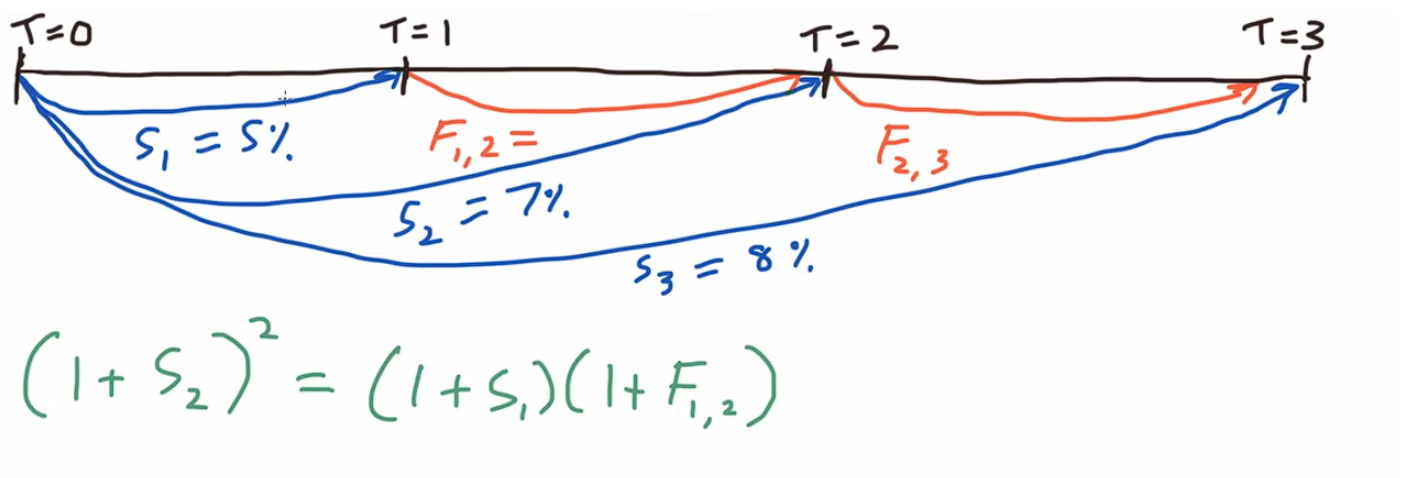 T=0 T=1 T=2 T=3
S₁ = 5% F₁,₂ = F₂,₃
S₂ = 7%
S₃ = 8%
(1+S₂)² = (1+S₁)(1+F₁,₂)